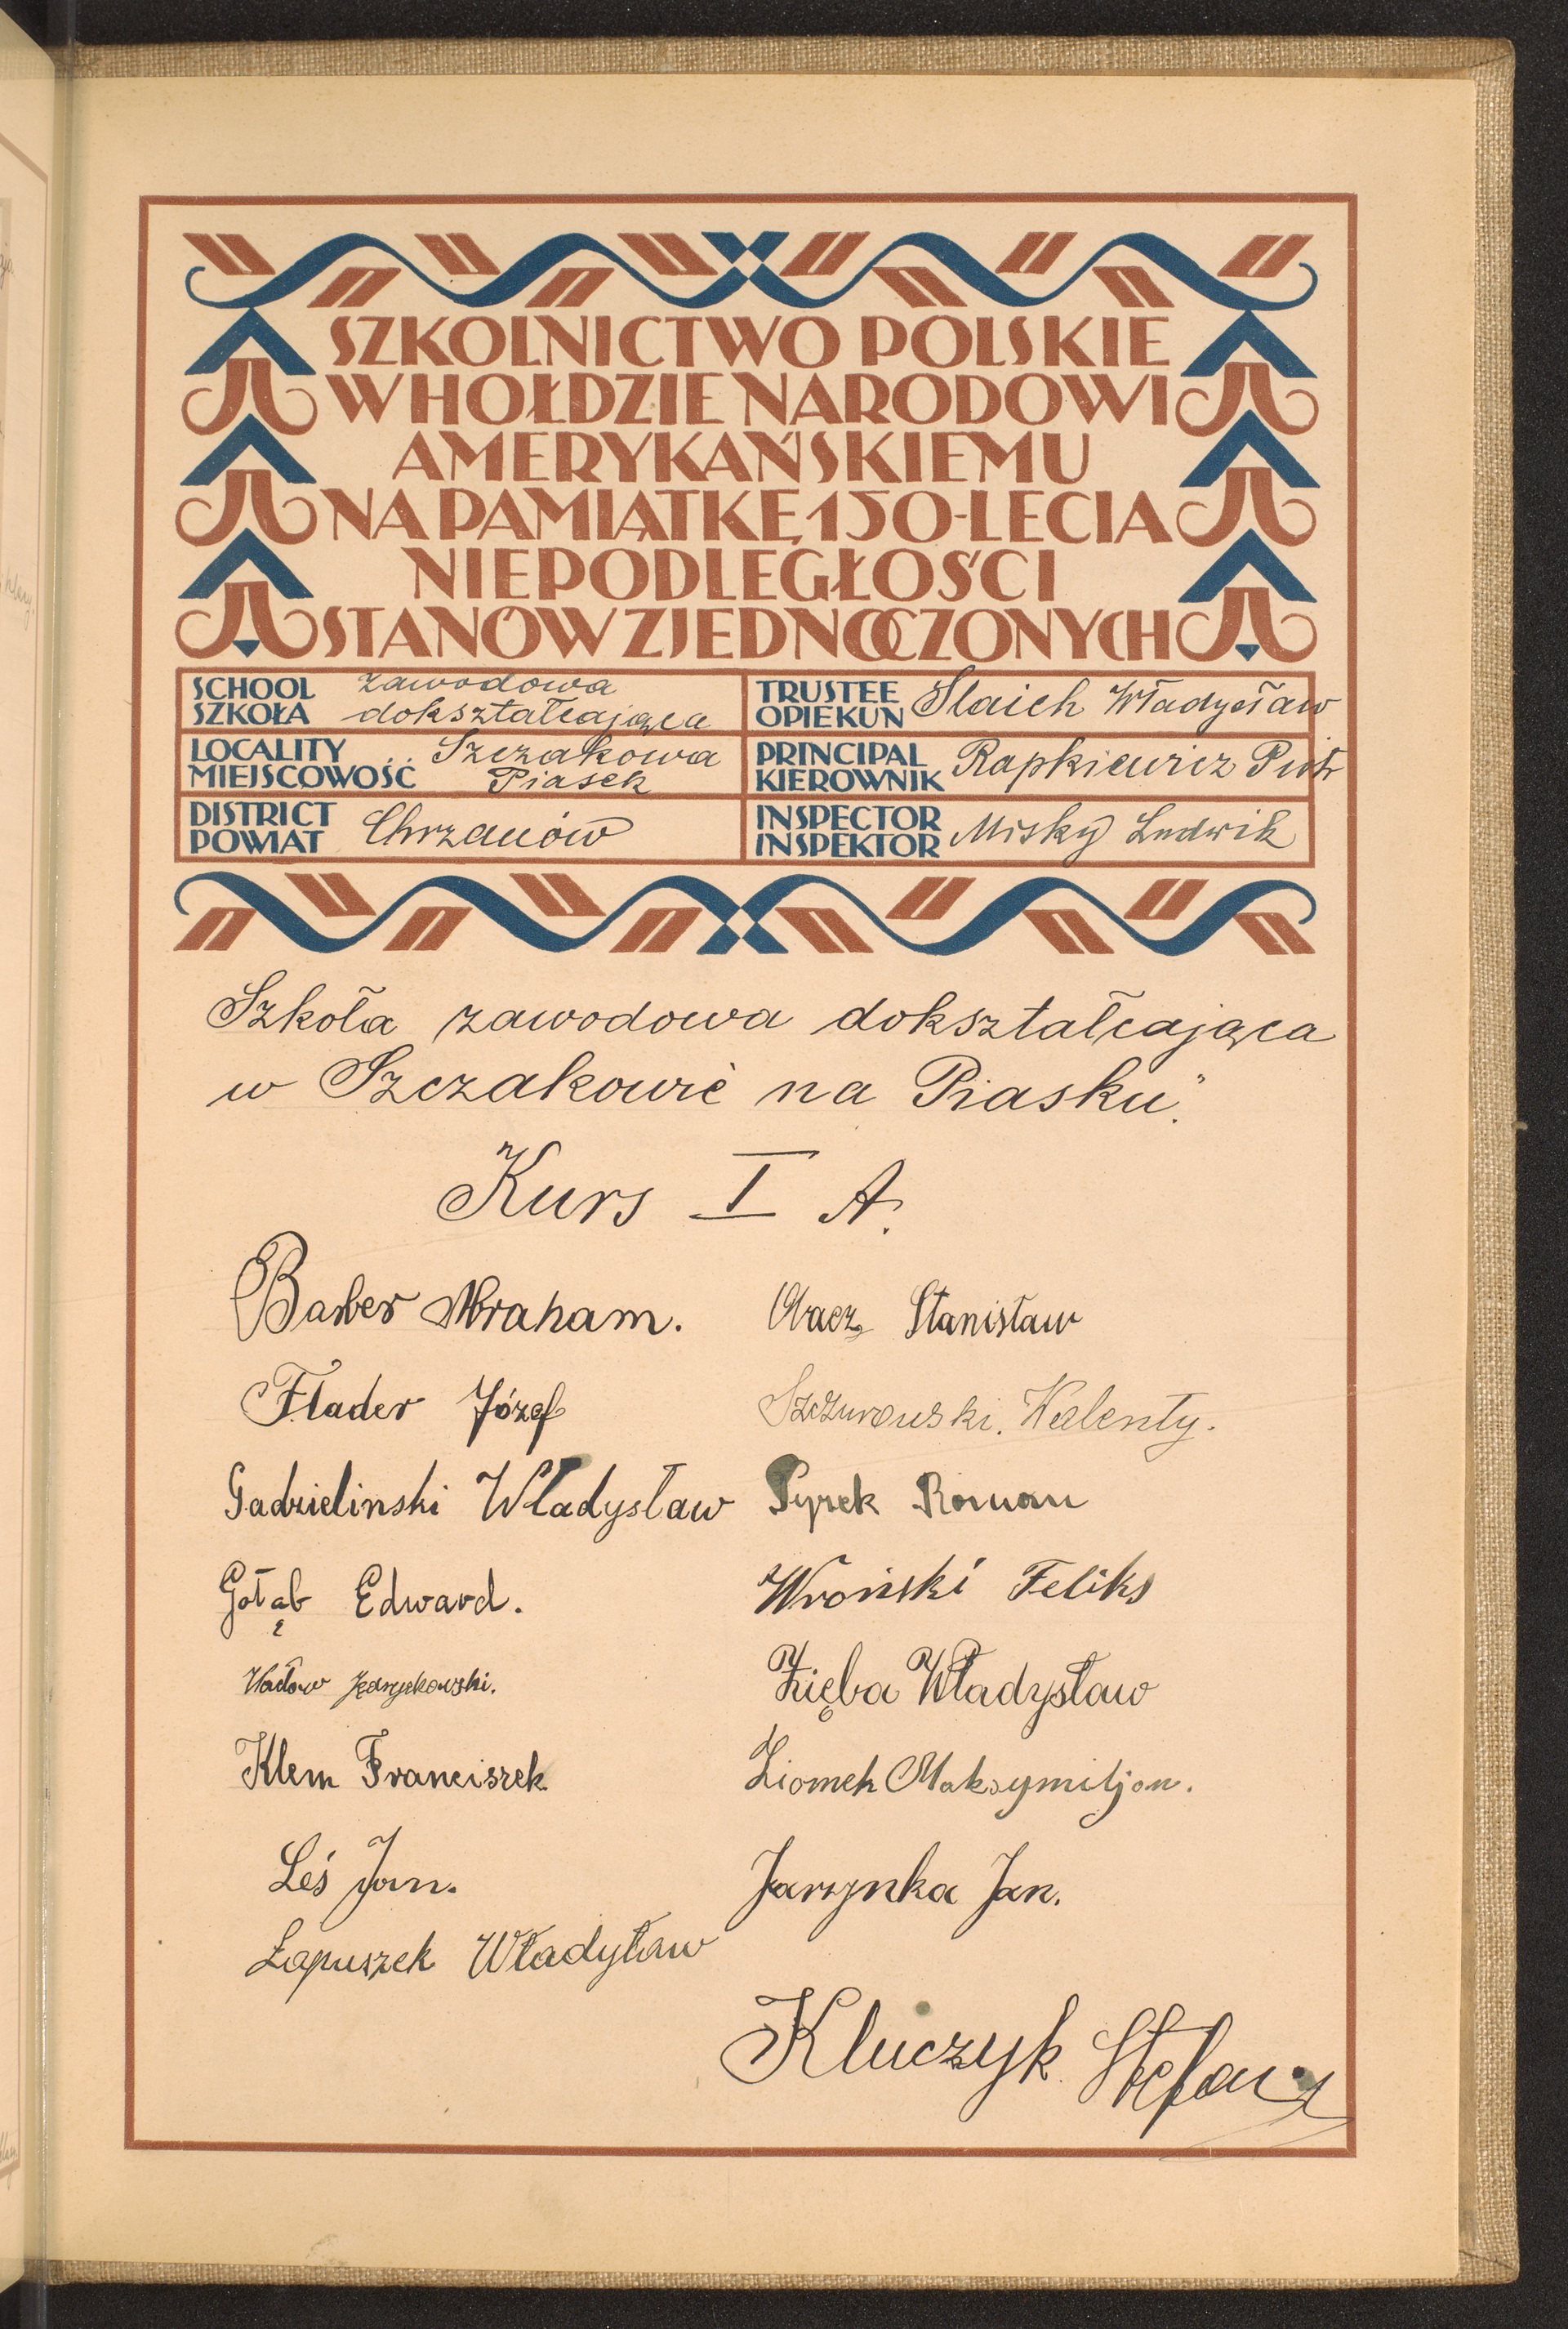 SZKOLNICTWO POLSKIE
W HOŁDZIE NARODOWI
AMERYKAŃSKIEMU
NA PAMIĄTKĘ 150-LECIA
NIEPODLEGŁOŚCI
STANÓW ZJEDNOCZONYCH
SCHOOL SZKOŁA zawodowa dokształcająca
TRUSTEE OPIEKUN Slaich Władysław
LOCALITY MIEJSCOWOŚĆ Szczakowa Piasek
PRINCIPAL KIEROWNIK Rapkiewicz Piotr
DISTRICT POWIAT Chrzanów
INSPECTOR INSPEKTOR Misky Ludwik
Szkoła zawodowa dokształcająca
w Szczakowie na Piasku".
Kurs I A.
Barber Abraham.
Flader Józef
Gadzielinski Władysław
Gołąb Edward.
Wacław Jędrzykowski.
Klem Franciszek
Leś Jan.
Łapuszek Władyław
Stanisław
Szczurowski. Walenty.
Pyrek Roman
Wroński Feliks
Zięba Władysław
Ziomek Maksymiljan.
Jarzynka Jan.
Kluczyk Stefan